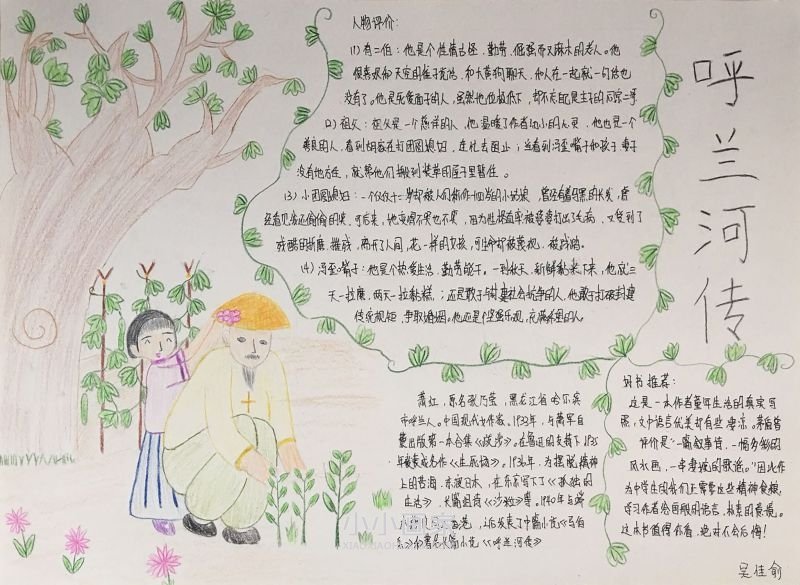 呼兰河传
人物评价：
(1) 有二伯：他是个性情古怪、勤劳、倔强而又麻木的老人。他
很喜欢和天空的雀子说话，和大黄狗聊天，和人在一起就一句话也
没有了。他是死要面子的人，虽然他地位低下，却不忘自己是主子的
(2) 祖父：祖父是一个慈祥的人，他温暖了作者幼小的心灵，他也是一个
善良的人，看到胡家在打团圆媳妇，连忙去阻止；当看到冯歪嘴子和孩子妻子
没有地方住，就帮他们搬到装草的屋子里暂住。
(3) 小团圆媳妇：一个仅仅十二岁却被人们称作十四岁的小姑娘，曾经有着乌黑的长发，曾
经看见
残酷的折磨、摧残，离开了人间，花一样的女孩，可生命却被蔑视、被践踏。
(4) 冯歪嘴子：他是个热爱生活、勤劳能干。一到秋天，新鲜黏米下来，他就三
天一拉磨，两天一拉黏糕，；还是敢于与封建社会抗争的人，他敢于打破封建
传统规矩，争取婚姻。他还是个坚强乐观，充满希望的人。
萧红，原名张乃莹，黑龙江省哈尔滨
市呼兰人。中国现代女作家。1933年，与萧军自
费出版第一本合集《跋涉》。在鲁迅的支持下1935
年发表成名作《生死场》。1936年，为摆脱精神
上的苦海，东渡日本，在东京写下了《孤独的
生活》、长篇组诗《沙粒》等。1940年与端
香港，之后发表了中篇小说《马伯
长篇小说《呼兰河传》
好书推荐：
这是一本作者童年生活的真实写
照，文中语言优美却有些凄凉。茅盾曾
评价是“一篇叙事诗，一幅多彩的
风土画，一串凄婉的歌谣。”因此作
为中学生的我们正需要这些精神食粮，
学习作者绘画般的语言，
这本书值得你看，绝对不会后悔！
吴佳俞